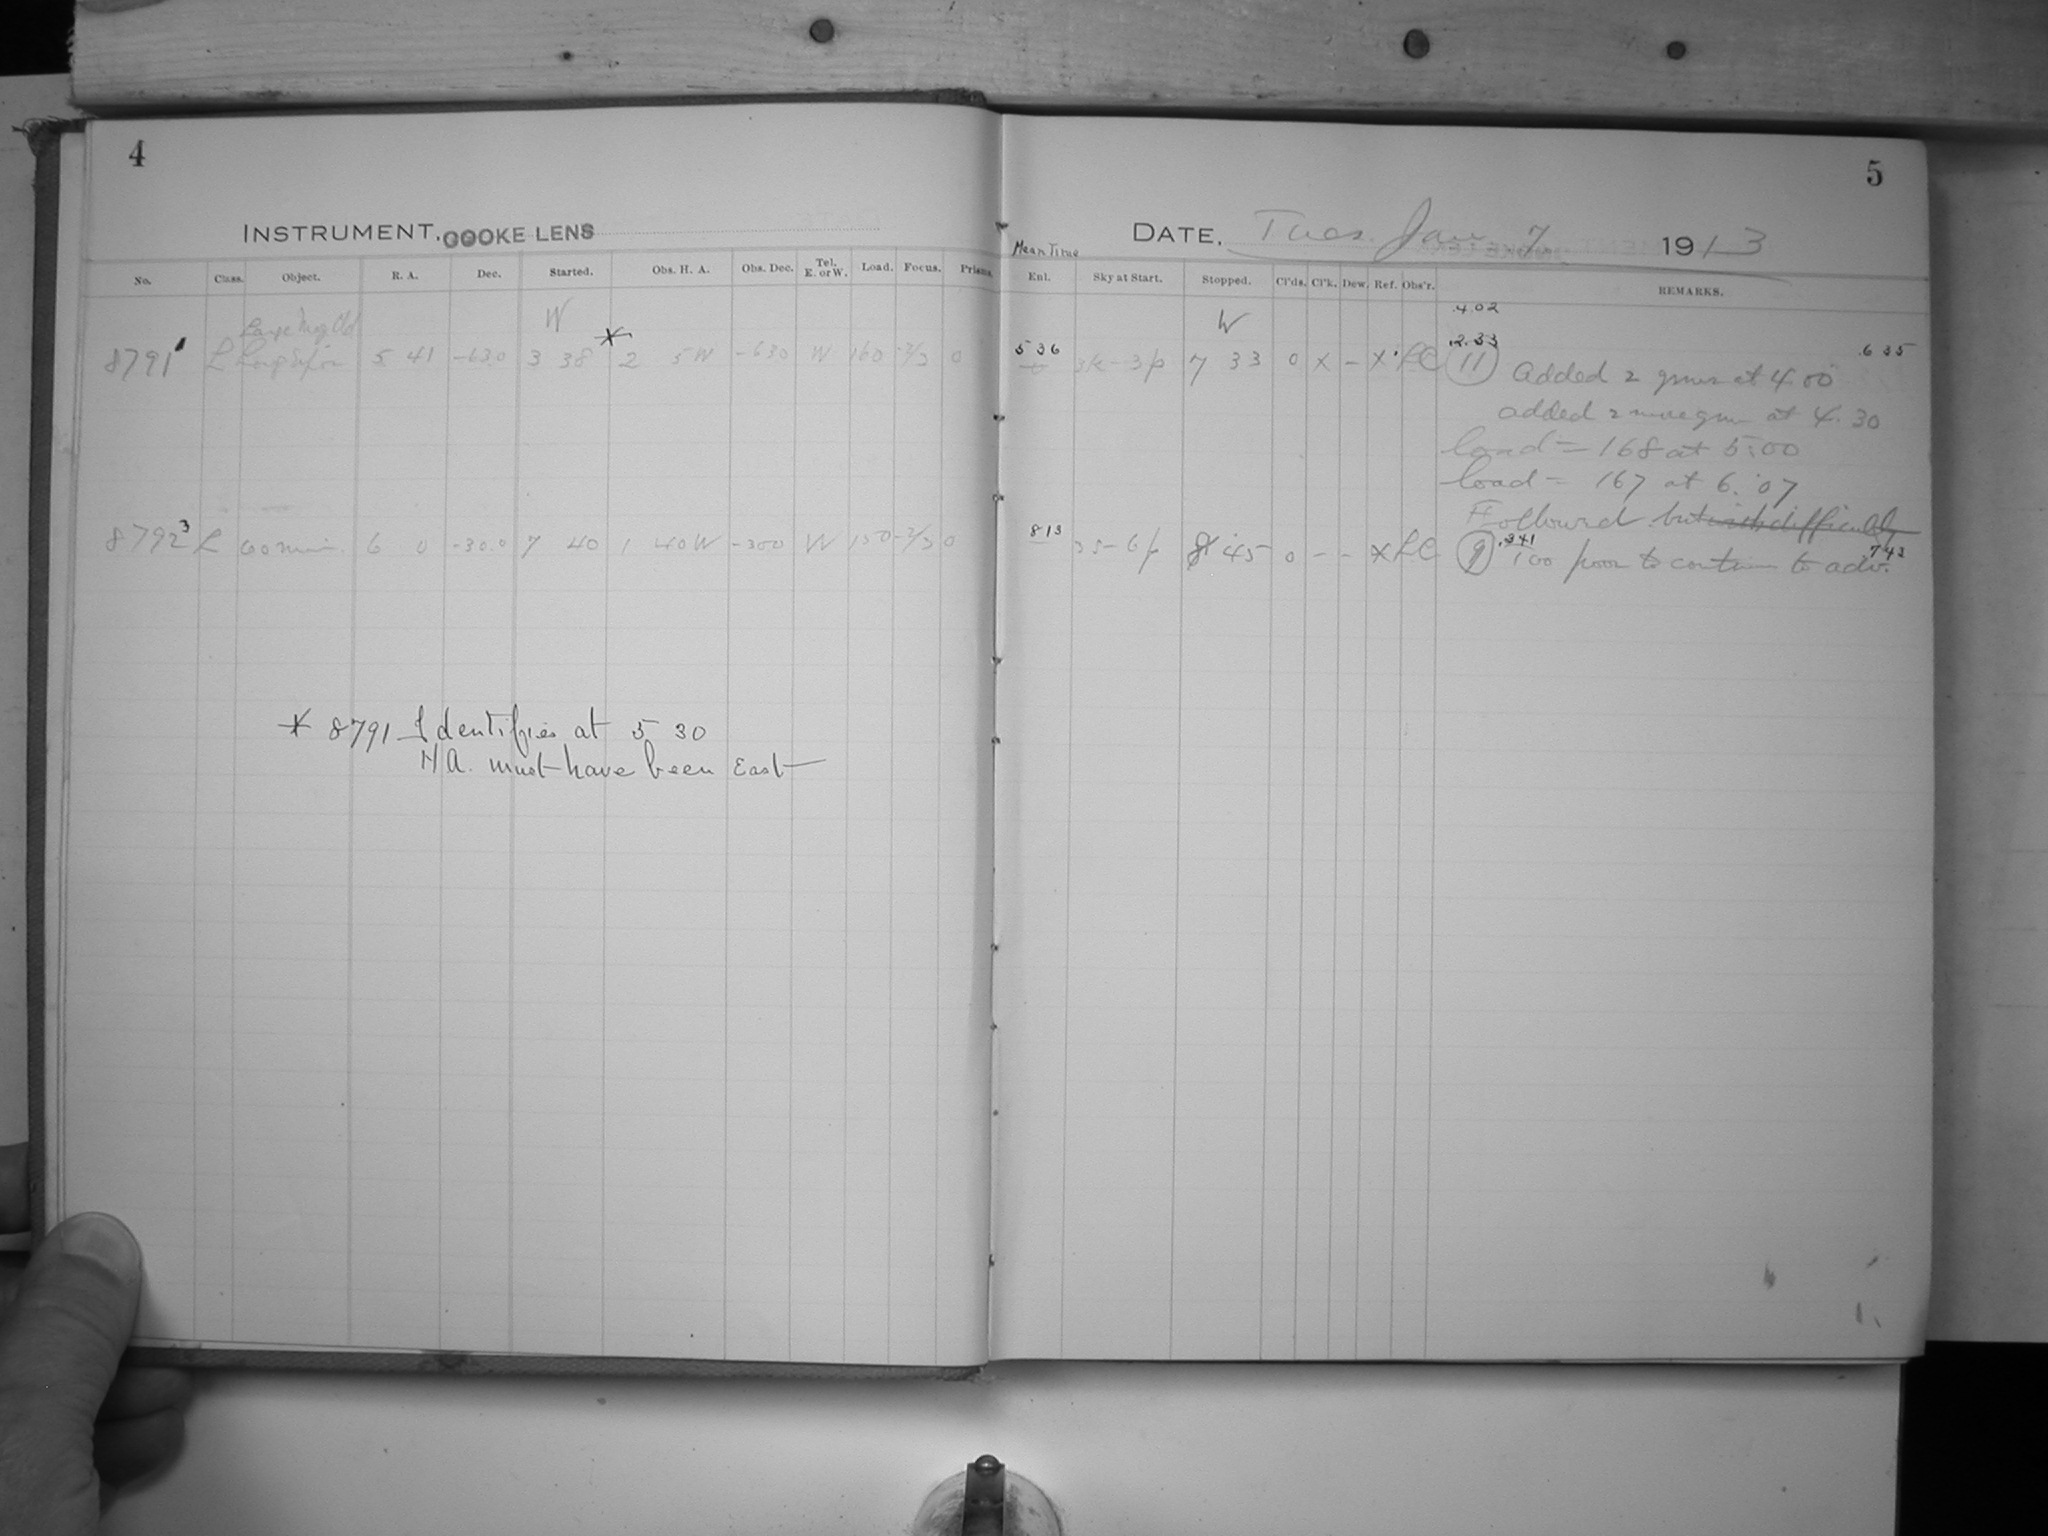 4
INSTRUMENT. COOKE LENS
No. Class. Object. R. A. Dec. Started. Obs. H. A. Obs. Dec. Tel. E. or W. Load. Focus. Prisms.
W
8791 L 5 41 -63.0 3 38 * 2 5 W -63.0 W 160 0
8792 3 L 60 min. 6 0 -30.0 7 40 1 40 W -30.0 W 150 0
* 8791 Identifies at 5 30
H A. must have been East
5
DATE. Tues. Jan 7 1913
Mean Time
Enl. Sky at Start. Stopped. Cl'ds. Cl'k. Dew. Ref. Obs'r. REMARKS.
.4.02
W
.2.33 .635
5 36 3k-3p 7 33 0 x - x LC 11 Added 2 at 4.00
added 2 more at 4.30
load = 168 at 5:00
load = 167 at 6:07
Followed but with difficulty
8 13 .341 743
35-6p 8 45 0 - - x LC 9 Too poor to continue to adv.